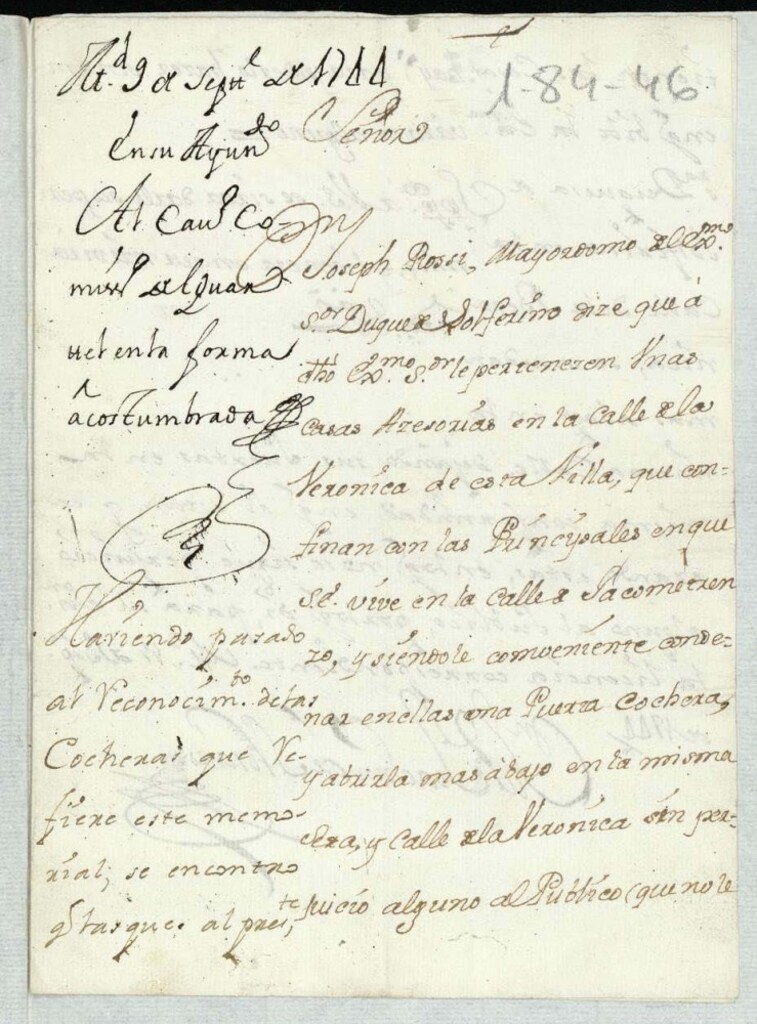 1-84-46
Md. 9 de Septe. de 1744
En su Ayundo
Al Cauo. Co
misso. del Quar
tel en la forma
acostumbrada
Señor
Joseph Rossi, Mayordomo del Exmo.
sor Duque de Solferino dize que á
dho Exmo. sor le pertenezen Unas
Casas Azesorias en la Calle de la
Veronica de esta Villa, que con=
finan con las Prinzipales en que
se. vive en la Calle de Jacometren
zo, y siéndole comveniente conde=
nar en ellas una Puerta Cochera,
y abrirla mas ábajo en la misma
Azera, y Calle de la Veronica sin per=
juicio alguno del Publico (que no le
Haviendo pasado
al Reconocimto. de las
Cocheras que Re-
fiere este memo-
rial, se encontro
q las que al preste,